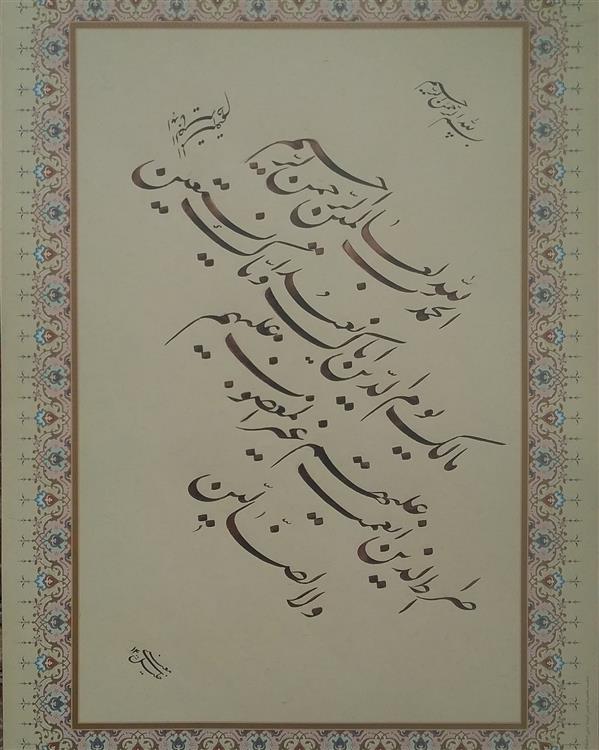 بسم الله الرحمن الرحیم
الحمد لله رب العالمین الرحمن الرحیم
مالک یوم الدین ایاک نعبد و ایاک نستعین
اهدنا الصراط المستقیم
صراط الذین انعمت علیهم غیر المغضوب علیهم
ولا الضالین